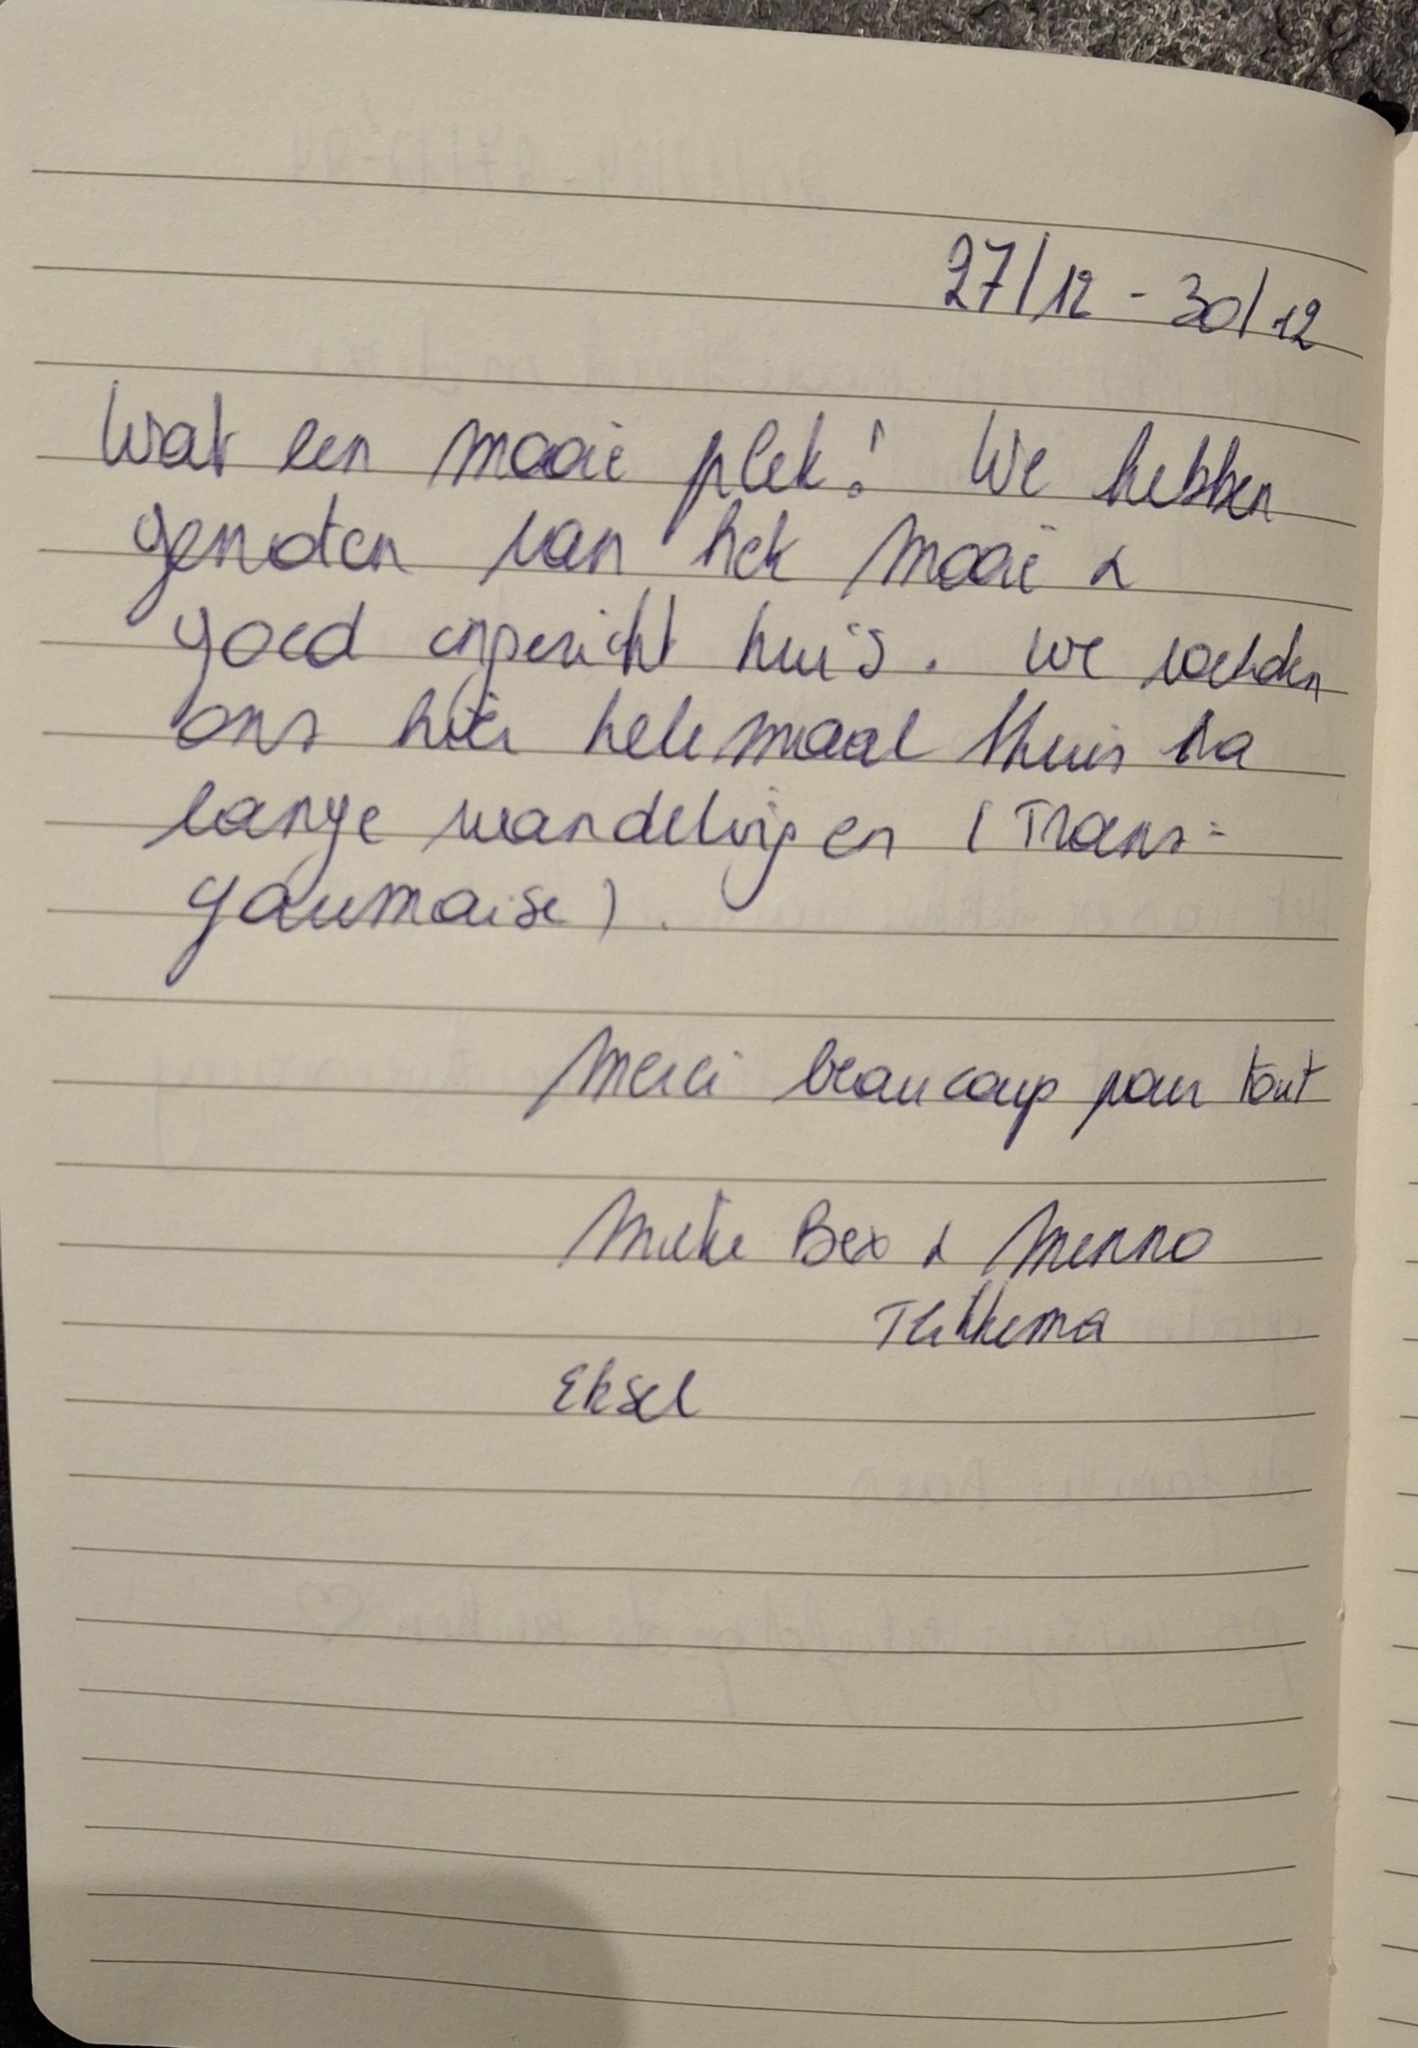 27/12 - 30/12
Wat een mooie plek! We hebben
genoten van het mooi &
goed ingericht huis. We voelden
ons hier helemaal thuis na
lange wandelingen (Trans-
gaumaise).
Merci beaucoup pour tout
Mieke Bex & Menno
Eksel